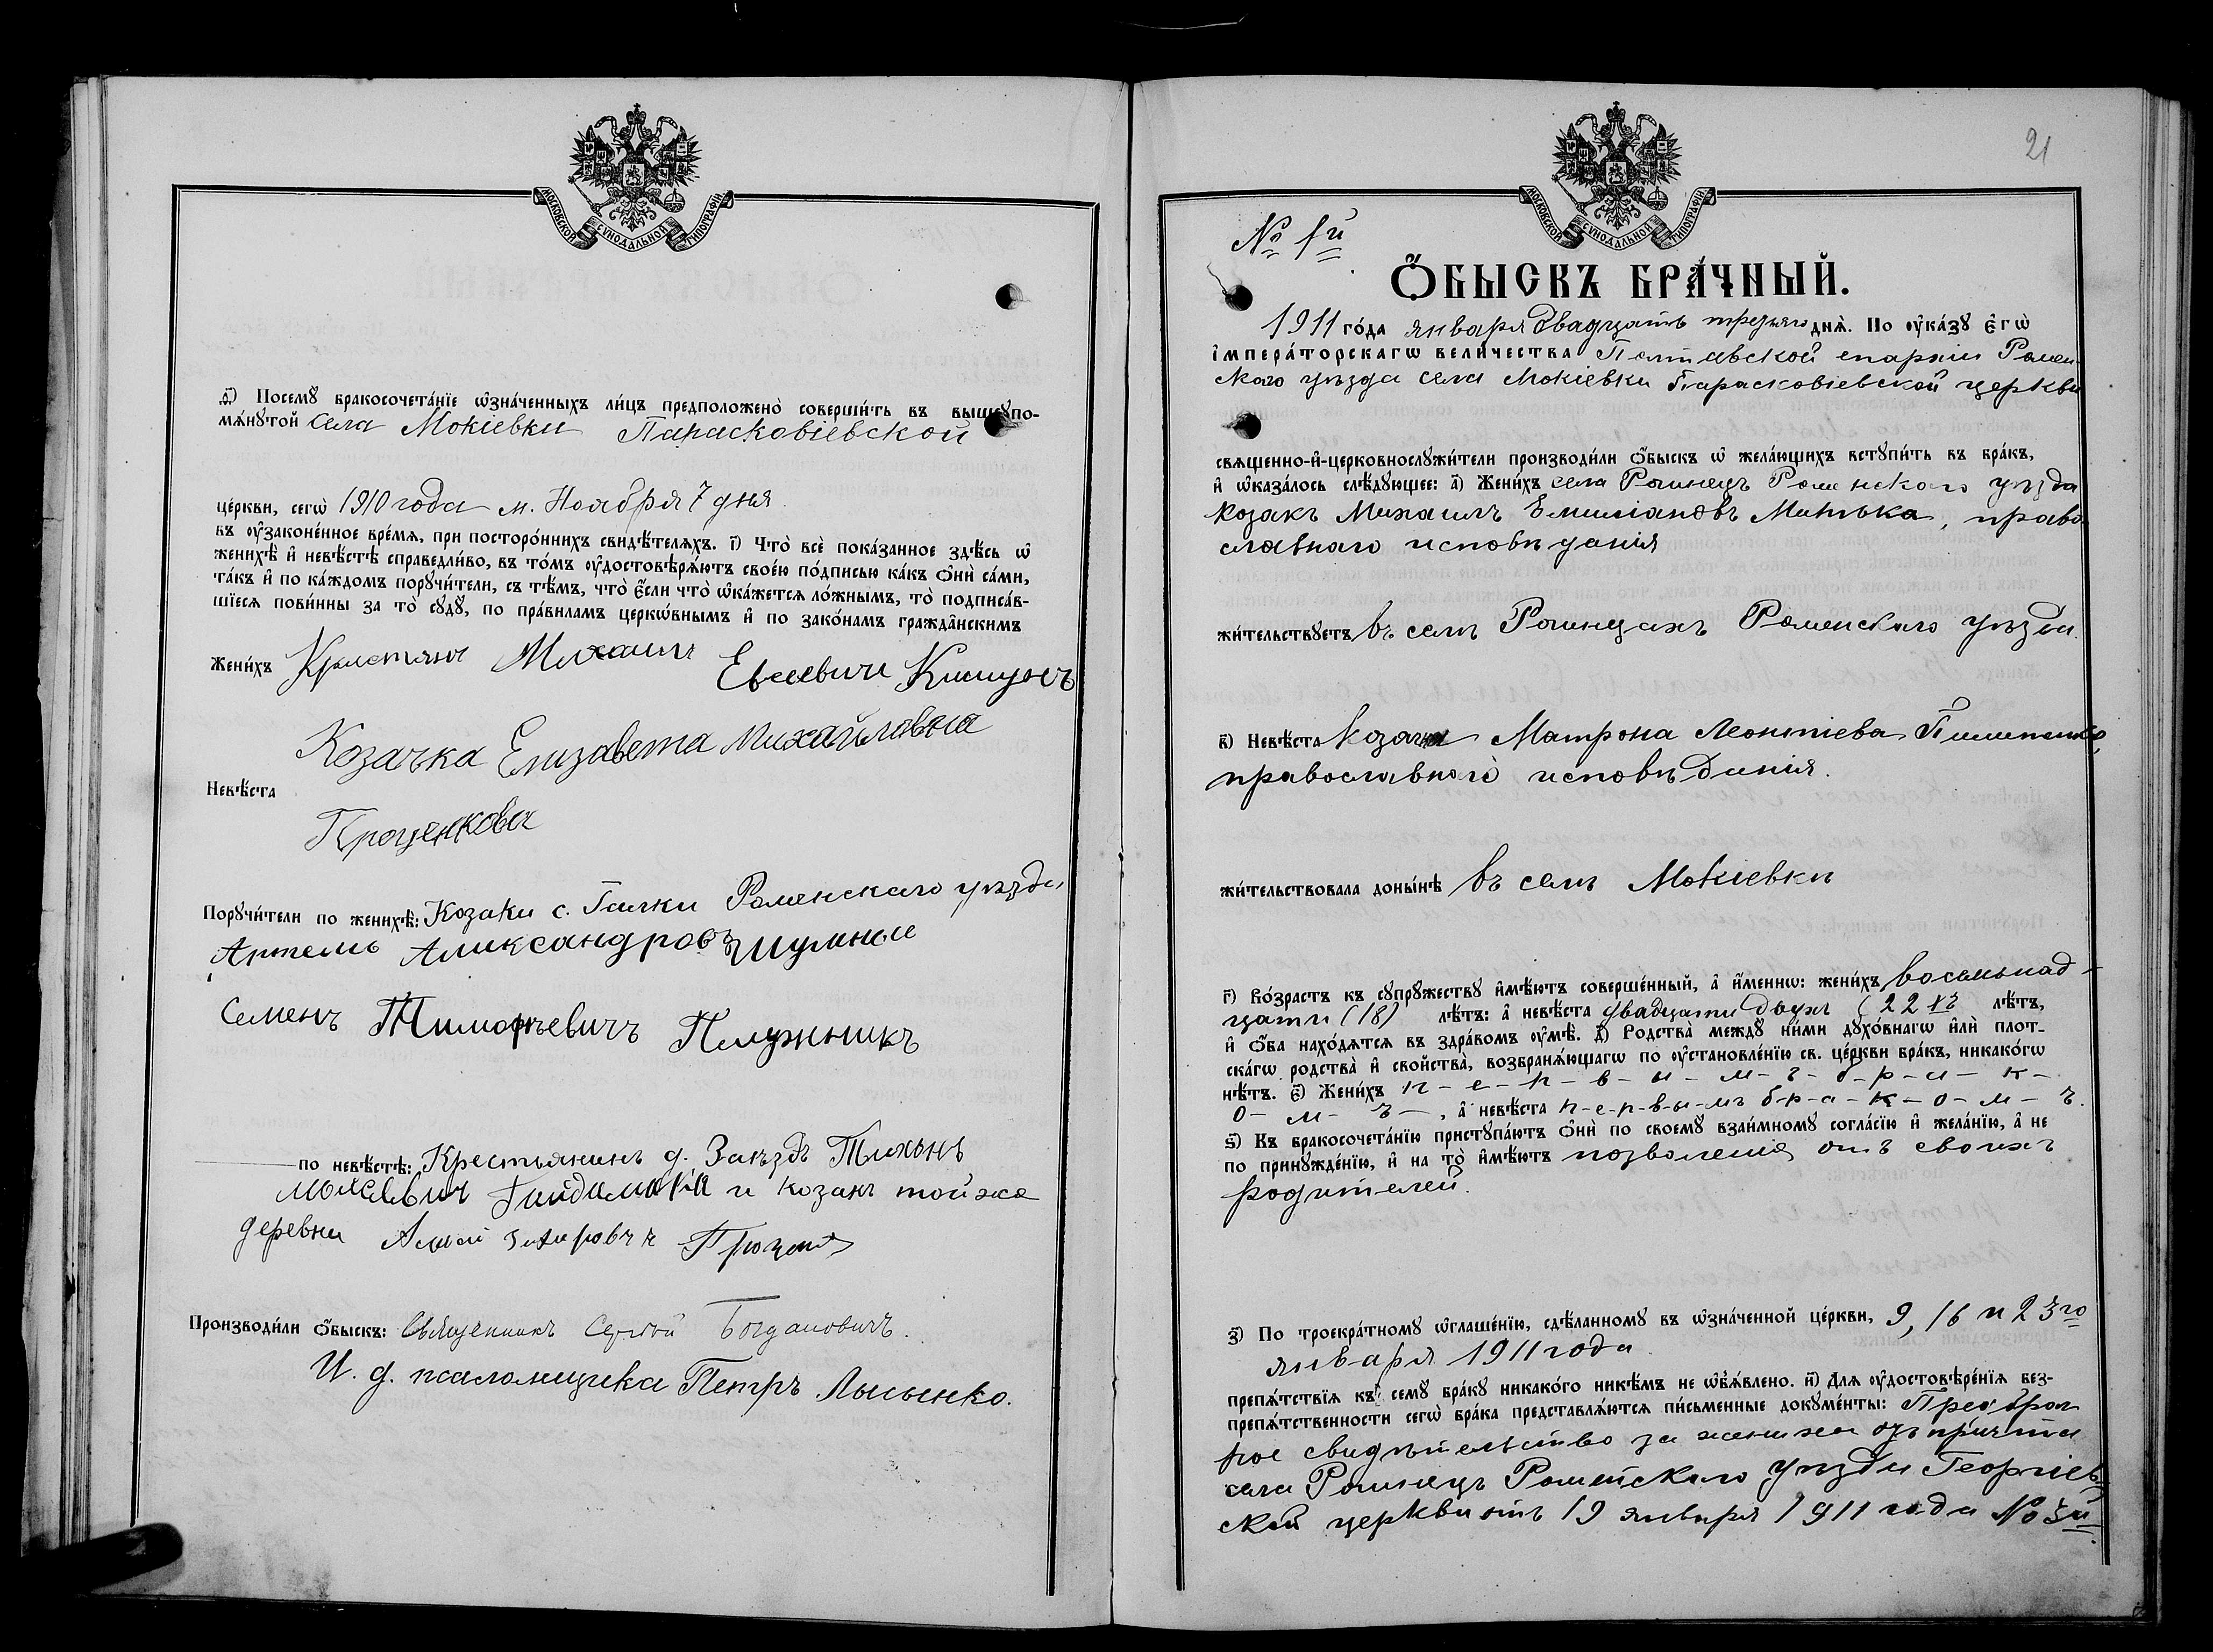 МОСКОВСКОЙ СѴНОДАЛЬНОЙ ТИПОГРАФІИ
д҃) Посемꙋ бракосочета́нїе ѡ҆зна́ченныхъ ли́цъ предположено̀ соверши́ть въ вышеꙋпо-
мѧ́нꙋтой села Мокіевки Парасковіевской
це́ркви, сегѡ̀ 1910 года м. Ноября 7 дня
въ ᲂу҆законе́нное вре́мѧ, при посторо́ннихъ свидѣ́телѧхъ. і҃) Что̀ всѐ пока́занное здѣ́сь ѡ҆
женихѣ̀ и҆ невѣ́стѣ справедли́во, въ то́мъ ᲂу҆достовѣрѧ́ютъ свое́ю по́дписью ка́къ ѻ҆нѝ са́ми,
та́къ и҆ по ка́ждомъ порꙋчи́тели, съ тѣ́мъ, что̀ є҆́сли что̀ ѡ҆ка́жетсѧ ло́жнымъ, то̀ подписа́в-
шїесѧ пови́нны за то̀ сꙋдꙋ̀, по пра́виламъ церкѡ́внымъ и҆ по зако́намъ гражда̑нскимъ
Жени́хъ Михаилъ
Евсевичъ
Козачка Елизавета Михайловна
Невѣ́ста
Проценкова
Порꙋчи́тели по женихѣ̀: Козаки с. Роменскаго уѣзда
Артемъ Александровъ Шумный
Семенъ Тимофѣевичъ Плужникъ
по невѣ́стѣ: Крестьянинъ д. Заѣздъ Тихонъ
Гайдамака и козакъ той же
деревни
Производи́ли ѻ҆́быскъ: Священникъ Сергій Богдановичъ.
И. д. псаломщика Петръ Лысенко.
21
МОСКОВСКОЙ СѴНОДАЛЬНОЙ ТИПОГРАФІИ
№ 1й
Ѻ҆́БЫСКЪ БРА́ЧНЫЙ.
1911 го́да января двадцать третьяго днѧ̀. По ᲂу҆ка́зꙋ є҆гѡ̀
и҆мпера́торскагѡ вели́чества Полтавской епархіи Ромен
скаго уѣзда села Мокіевки Парасковіевской церкви
свѧщенно-и҆-церковнослꙋжи́тели производи́ли ѻ҆́быскъ ѡ҆ жела́ющихъ встꙋпи́ть въ бра́къ,
и҆ ѡ҆каза́лось слѣ́дꙋющее: а҃) Жени́хъ села Роменскаго уѣзда
козакъ Михаилъ Емиліановъ Митька, право
славнаго исповѣданія
жи́тельствꙋетъ въ селѣ Роменскаго уѣзда.
в҃) Невѣ́ста козачка Матрона Леонтіева
православнаго исповѣданія.
жи́тельствовала доны́нѣ въ селѣ Мокіевкѣ
г҃) Во́зрастъ къ сꙋпрꙋ́жествꙋ и҆мѣ́ютъ соверше́нный, а҆ и҆́меннѡ: жени́хъ восемьнад-
цати (18) лѣ́тъ: а҆ невѣ́ста двадцати двухъ (22 хъ лѣ́тъ,
и҆ ѻ҆́ба нахо́дѧтсѧ въ здра́вомъ ᲂу҆мѣ̀. д҃) Родства̀ междꙋ̀ ни́ми дꙋхо́внагѡ и҆лѝ плот-
ска́гѡ родства̀ и҆ сво́йства̀, возбранѧ́ющагѡ по ᲂу҆становле́нїю св. це́ркви бра́къ, никако́гѡ
нѣ́тъ. є҃) Жени́хъ п-е-р-в-ы-м-ъ б-р-а-к-
о-м-ъ-, а҆ невѣ́ста п-е-р-в-ы-мъ б-р-а-к-о-м-ъ.
ѕ҃) Къ бракосочета́нїю пристꙋпа́ютъ ѻ҆нѝ по своемꙋ̀ взаи́мномꙋ согла́сїю и҆ жела́нїю, а҆ не
по принꙋжде́нїю, и҆ на то̀ и҆мѣ́ютъ позволенія отъ своихъ
родителей.
з҃) По троекра́тномꙋ ѡ҆глаше́нїю, сдѣ́ланномꙋ въ ѡ҆зна́ченной це́ркви, 9, 16 и 23го
января 1911 года
препѧ́тствїѧ къ семꙋ̀ бра́кꙋ никако́гѡ никѣ́мъ не ѡ҆б̾ѧ́влено. и҃) Длѧ ᲂу҆достовѣре́нїѧ без-
препѧ́тственности сегѡ̀ бра́ка представлѧ́ютсѧ пи́сьменные докꙋме́нты: Предбрач
ное свидѣтельство за жениха отъ причта
села Роменскаго уѣзда Георгіев
ской церкви отъ 19 января 1911 года № 3й